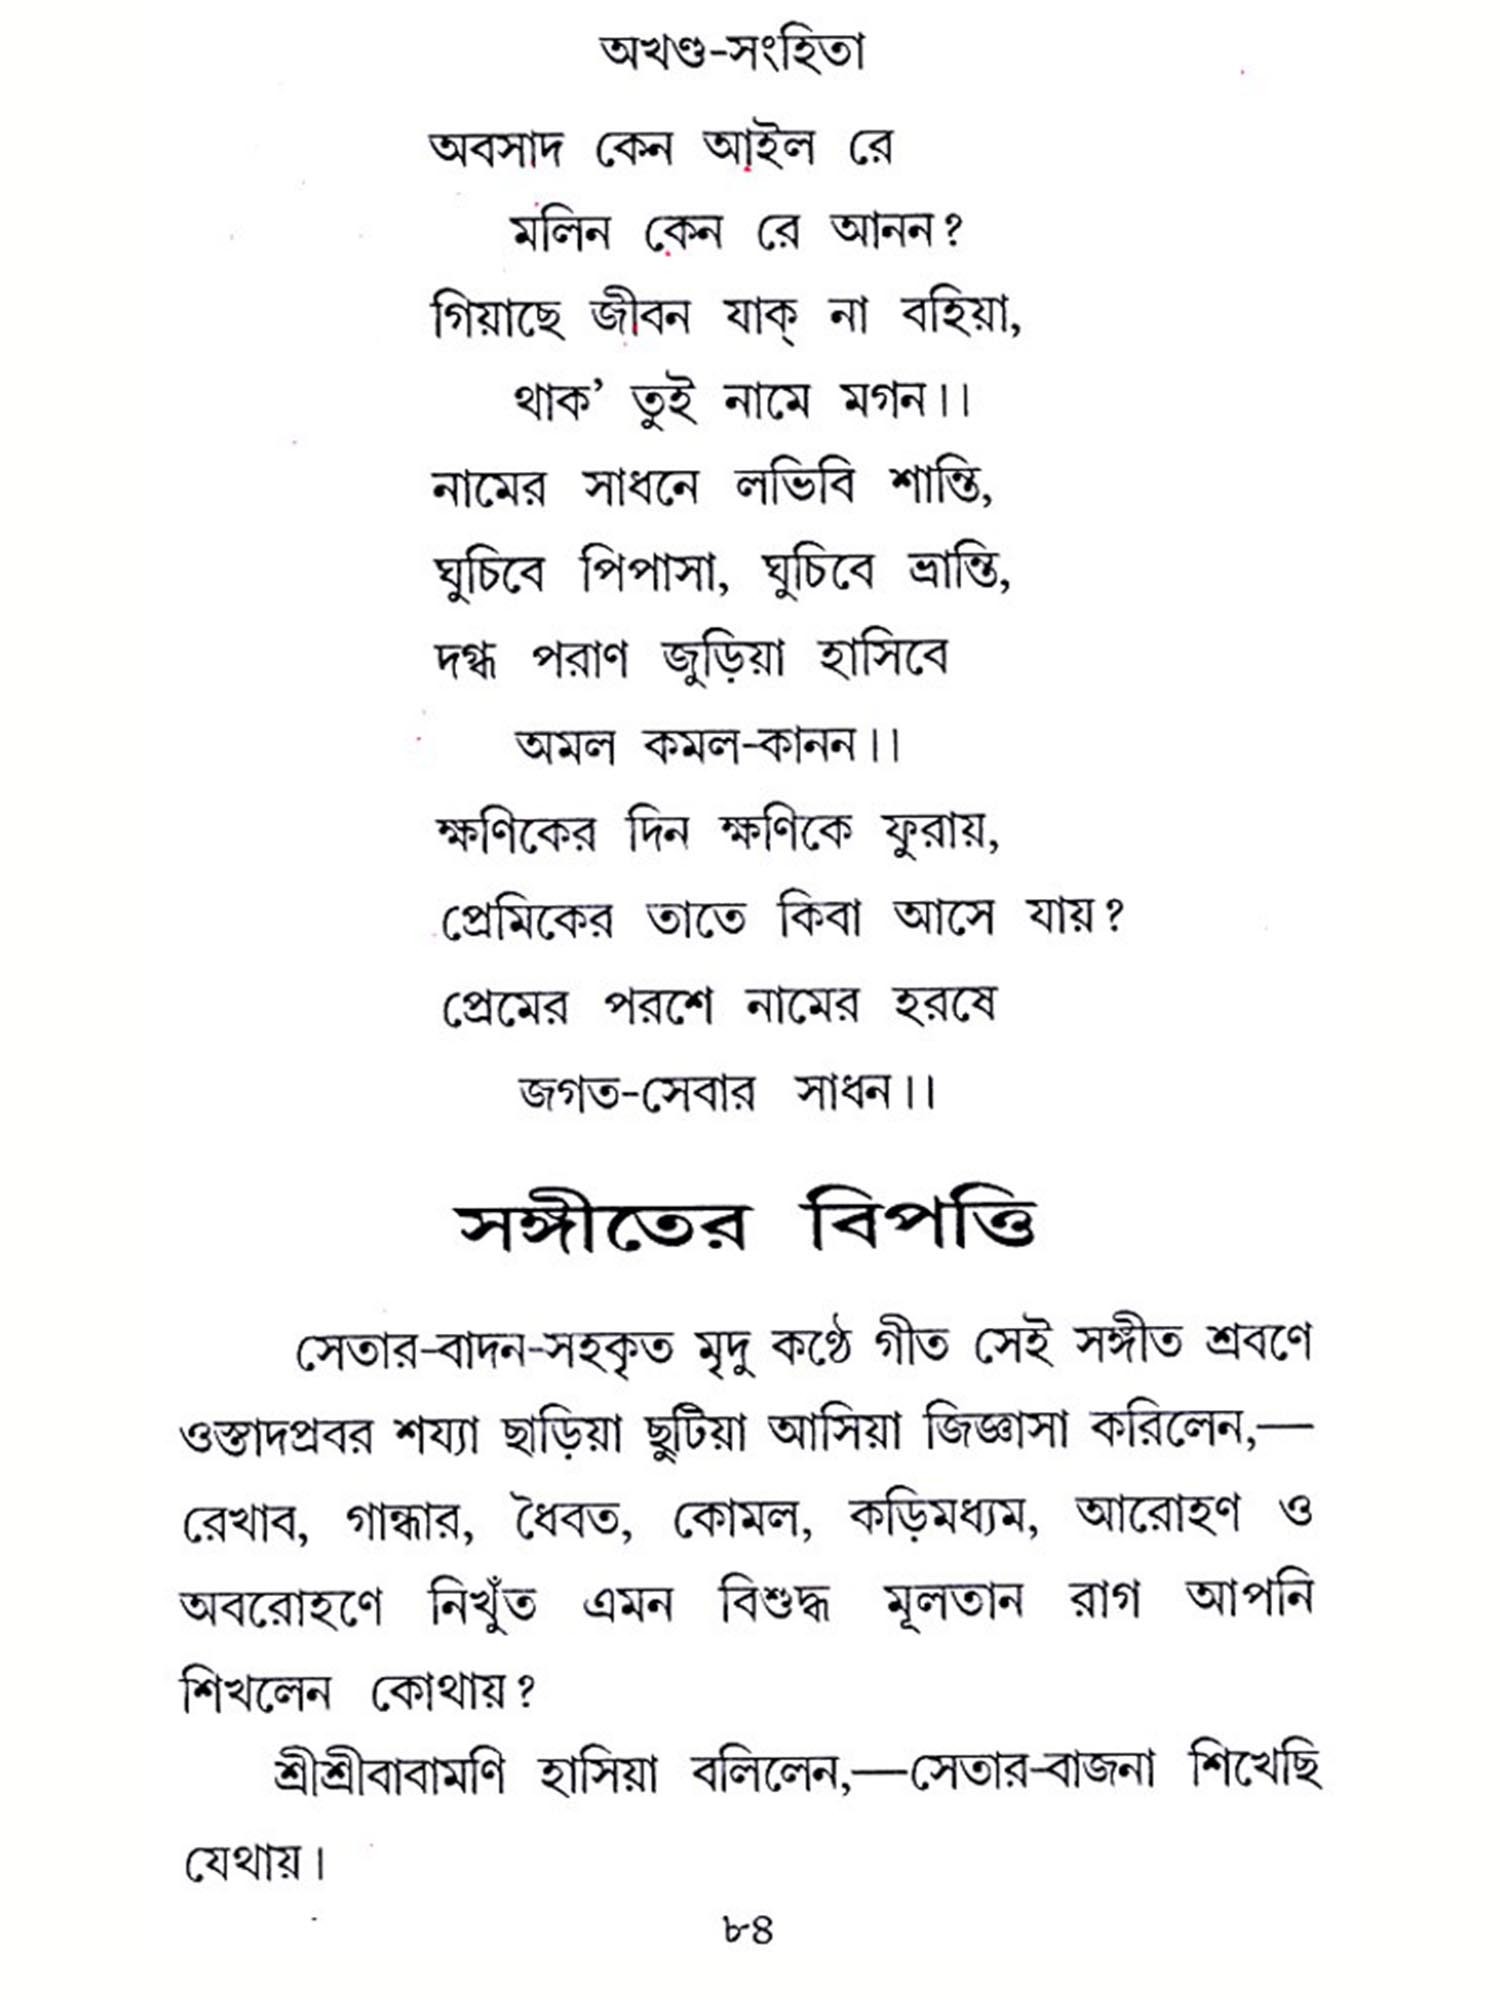 অখণ্ড-সংহিতা
অবসাদ কেন আইল রে
মলিন কেন রে আনন?
গিয়াছে জীবন যাক্ না বহিয়া,
থাক’ তুই নামে মগন।।
নামের সাধনে লভিবি শান্তি,
ঘুচিবে পিপাসা, ঘুচিবে ভ্রান্তি,
দগ্ধ পরাণ জুড়িয়া হাসিবে
অমল কমল-কানন।।
ক্ষণিকের দিন ক্ষণিকে ফুরায়,
প্রেমিকের তাতে কিবা আসে যায়?
প্রেমের পরশে নামের হরষে
জগত-সেবার সাধন।।
সঙ্গীতের বিপত্তি
সেতার-বাদন-সহকৃত মৃদু কণ্ঠে গীত সেই সঙ্গীত শ্রবণে
ওস্তাদপ্রবর শয্যা ছাড়িয়া ছুটিয়া আসিয়া জিজ্ঞাসা করিলেন,—
রেখাব, গান্ধার, ধৈবত, কোমল, কড়িমধ্যম, আরোহণ ও
অবরোহণে নিখুঁত এমন বিশুদ্ধ মূলতান রাগ আপনি
শিখলেন কোথায়?
শ্রীশ্রীবাবামণি হাসিয়া বলিলেন,—সেতার-বাজনা শিখেছি
যেথায়।
৮৪